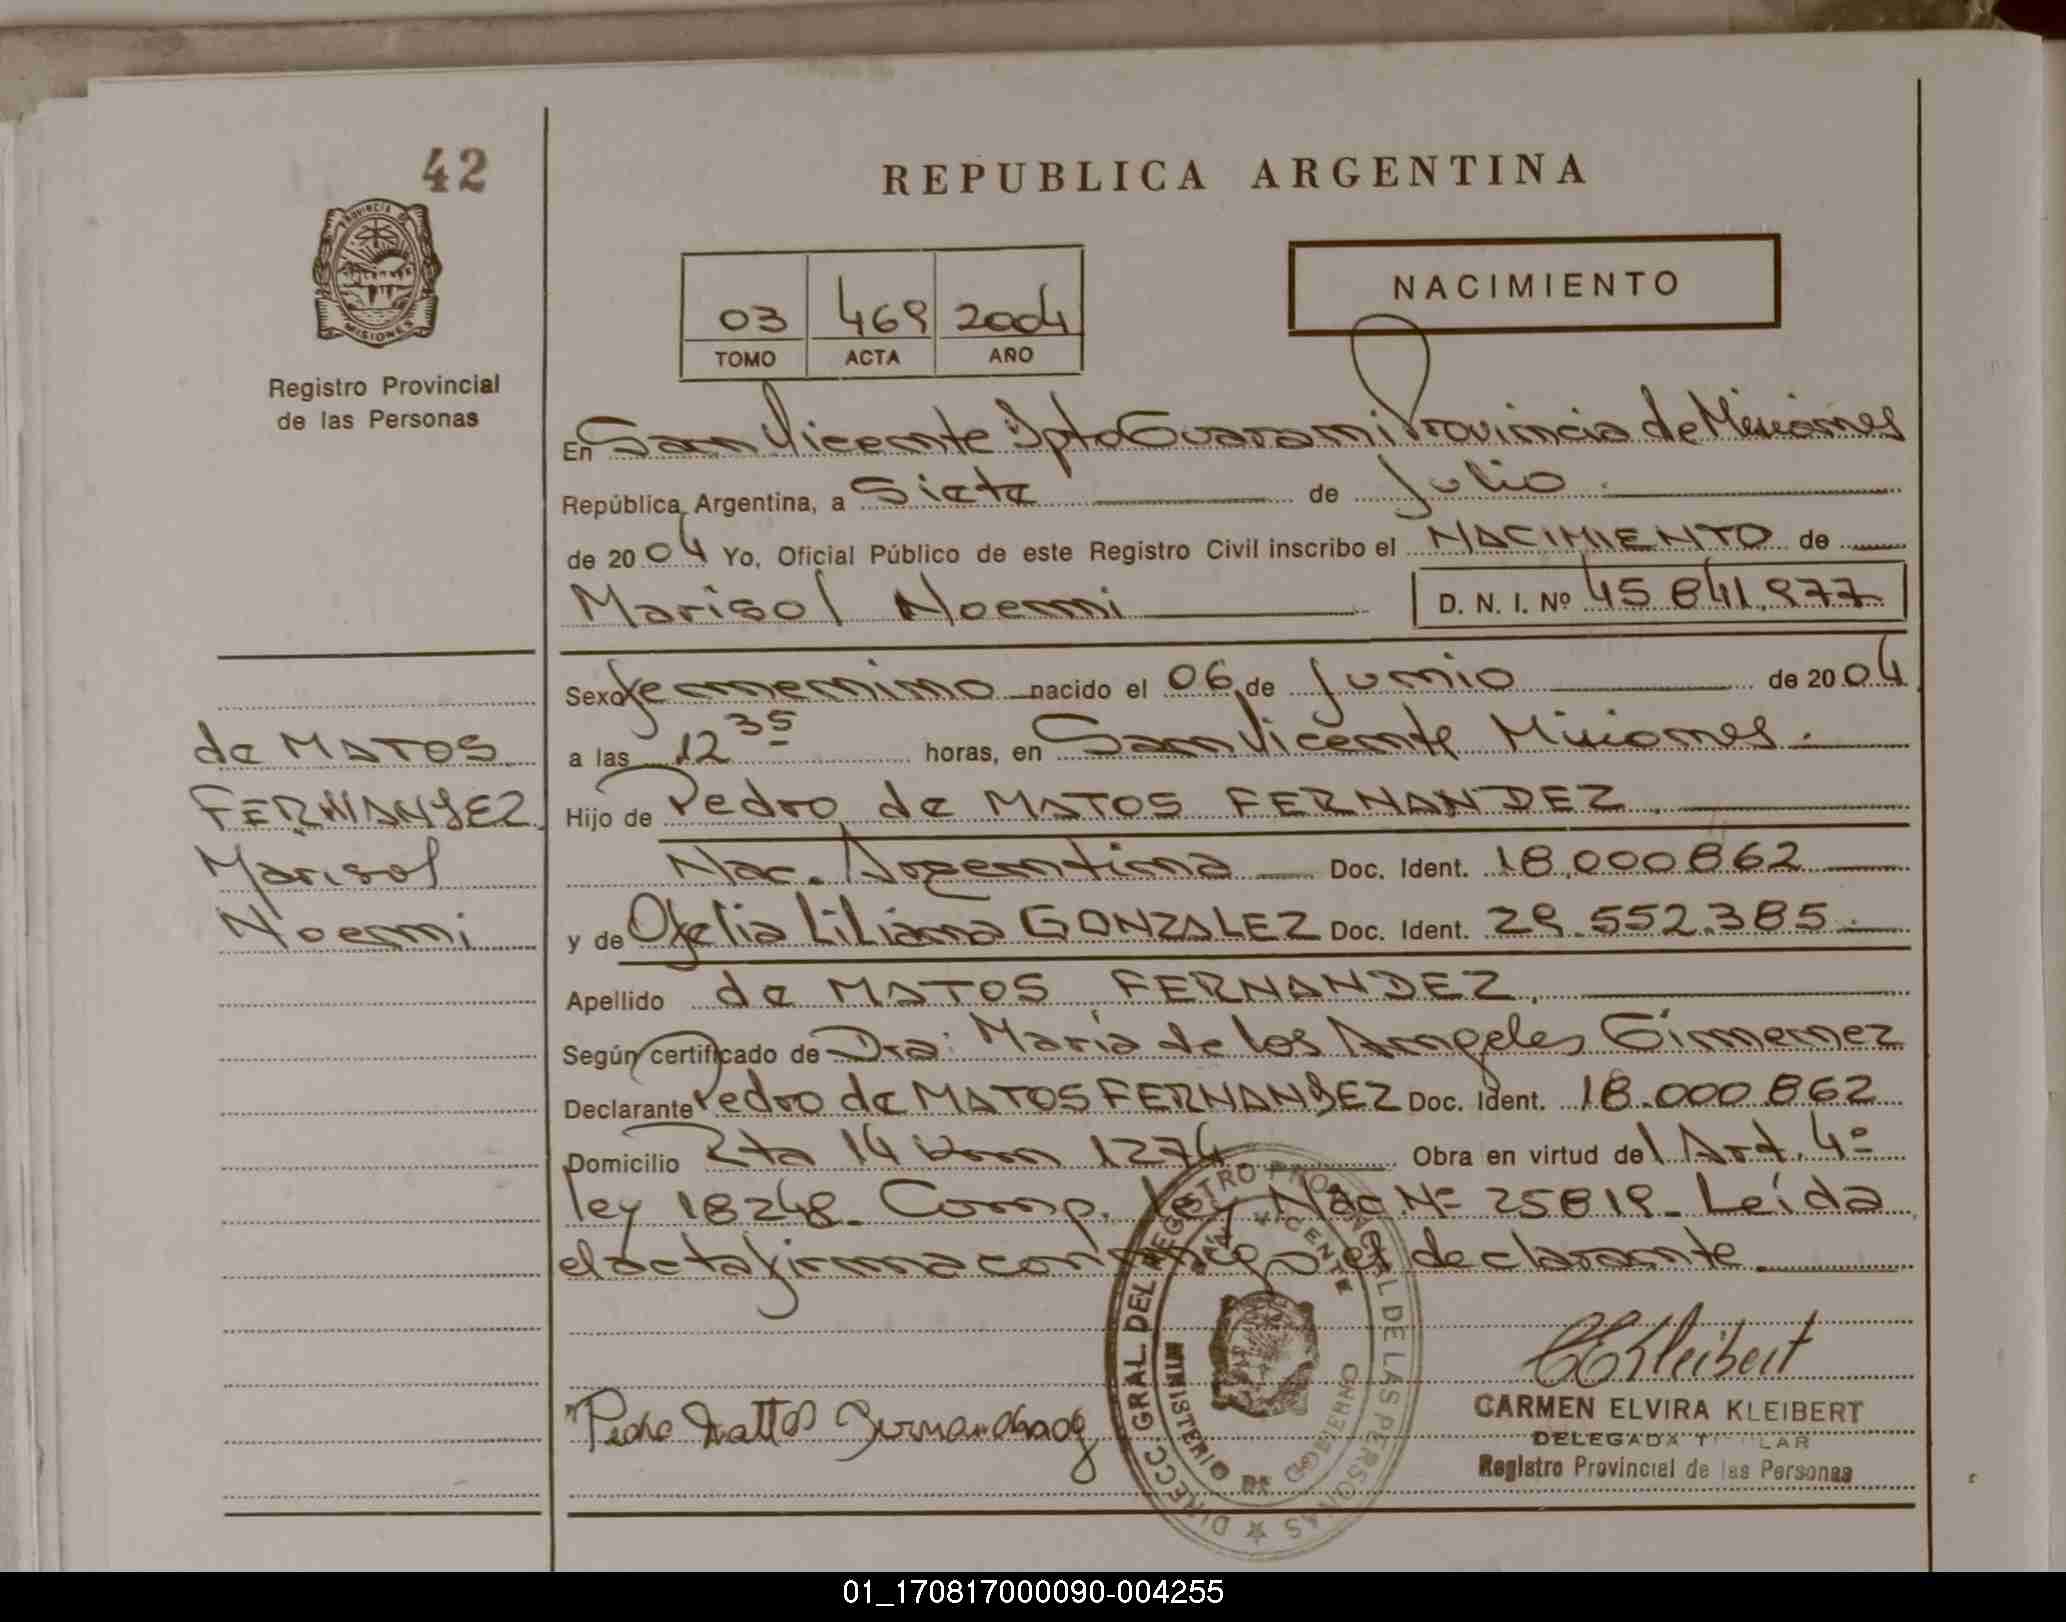 42
PROVINCIA DE
MISIONES
Registro Provincial
de las Personas
REPUBLICA ARGENTINA
03 469 2004
TOMO ACTA AÑO
NACIMIENTO
En San Vicente Dpto Guarani Provincia de Misiones
República Argentina, a Siete de Julio
de 2004 Yo, Oficial Público de este Registro Civil inscribo el NACIMIENTO de
Marisol Noemi D. N. I. Nº 45.841.977
Sexo femenino nacido el 06 de Junio de 2004
a las 12 35 horas, en San Vicente Misiones.
Hijo de Pedro de MATOS FERNANDEZ
Nac. Argentina Doc. Ident. 18.000.862
y de Ofelia Liliana GONZALEZ Doc. Ident. 29.552.385
Apellido de MATOS FERNANDEZ
Según certificado de Dra: María de los Angeles Gimenez
Declarante Pedro de MATOS FERNANDEZ Doc. Ident. 18.000.862
Domicilio Rta 14 Km 1274 Obra en virtud del Art. 4º
ley 18248. Comp. ley Nac. Nº 25819. Leída
el acta firma conmigo el declarante
de MATOS
FERNANDEZ
Marisol
Noemi
DIRECC GRAL. DEL REGISTRO PROVINCIAL DE LAS PERSONAS
VICENTE
MINISTERIO DE GOBIERNO
Pedro Mattos
CEKleibert
CARMEN ELVIRA KLEIBERT
DELEGADA TITULAR
Registro Provincial de las Personas
01_170817000090-004255